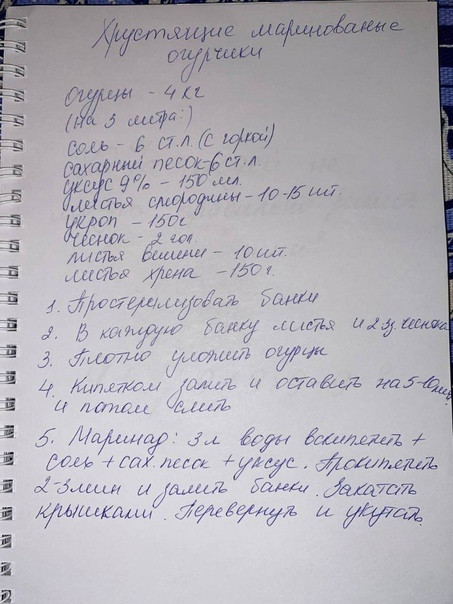 Хрустящие маринованые
огурчики
огурцы - 4 кг
(на 3 литра:)
соль - 6 ст.л. (с горкой)
сахарный песок - 6 ст.л.
уксус 9% - 150 мл.
листья смородины - 10-15 шт.
укроп - 150г
чеснок - 2 гол.
листья вишни - 10 шт.
листья хрена - 150 г.
1. Простерилизовать банки
2. В каждую банку листья и 2 з. чеснока
3. Плотно уложить огурцы
4. Кипятком залить и оставить на 5-10 мин.
и потом слить
5. Маринад: 3л воды вскипятить +
соль + сах. песок + уксус. Прокипятить
2-3 мин и залить банки. Закатать
крышками. Перевернуть и укутать.